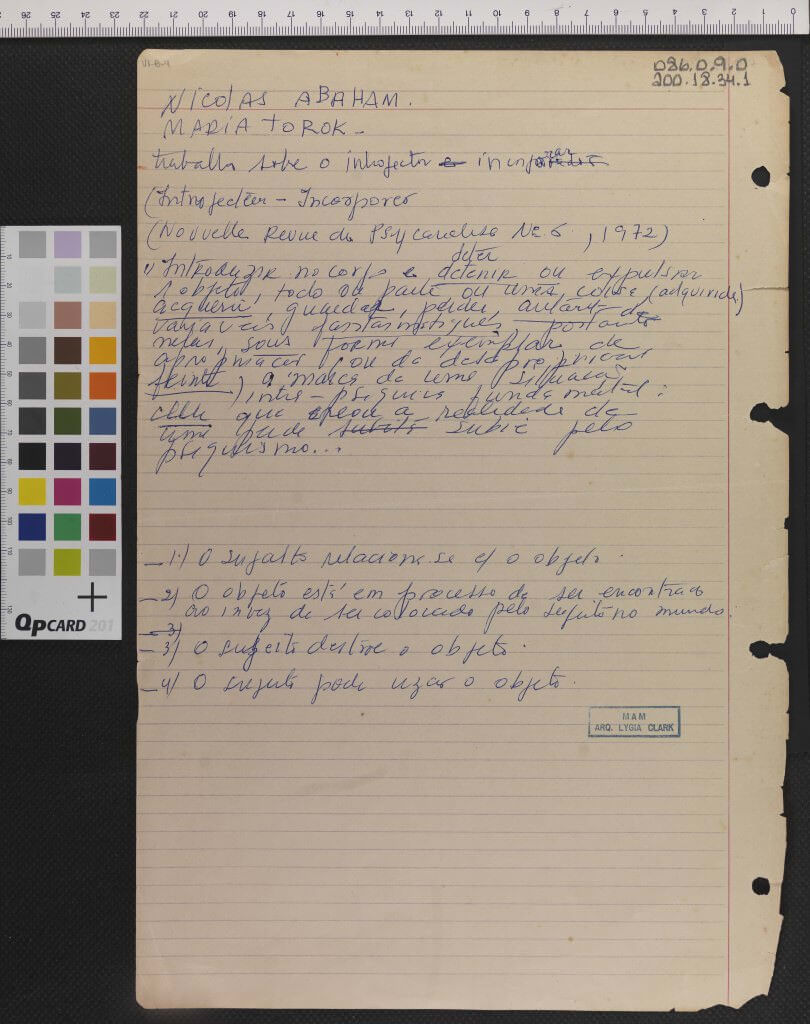 VI-B-4
086.0.9.0
200.18.34.1
NICOLAS ABAHAM.
MARIA TOROK -
trabalho sobre o introjectar e
(Introjecter - Incorporer
(Nouvelle Revue de Psycanalise Nº 6, 1972)
deter
1) Introduzir no corpo e, detenir ou expulsar
1 objeto, todo ou parte ou uma coisa (adquirida)
acquerir, guardar, perder, autant de
variaveis fantasmatiques portants
nelas, sous forme exemplar de
apropriação ou da
feinte, a marca de uma situação
intra-psiquica fundamental:
celle que creou a realidade da
uma perde subie pelo
psiquismo...
_1.) O sujeito relaciona-se c/ o objeto.
_2) O objeto está em processo de ser encontrado
ao invez de ser colocado pelo sujeito no mundo.
_3)
_3) O sujeito destroe o objeto.
_4) O sujeito pode uzar o objeto.
MAM
ARQ. LYGIA CLARK
QPCARD 201